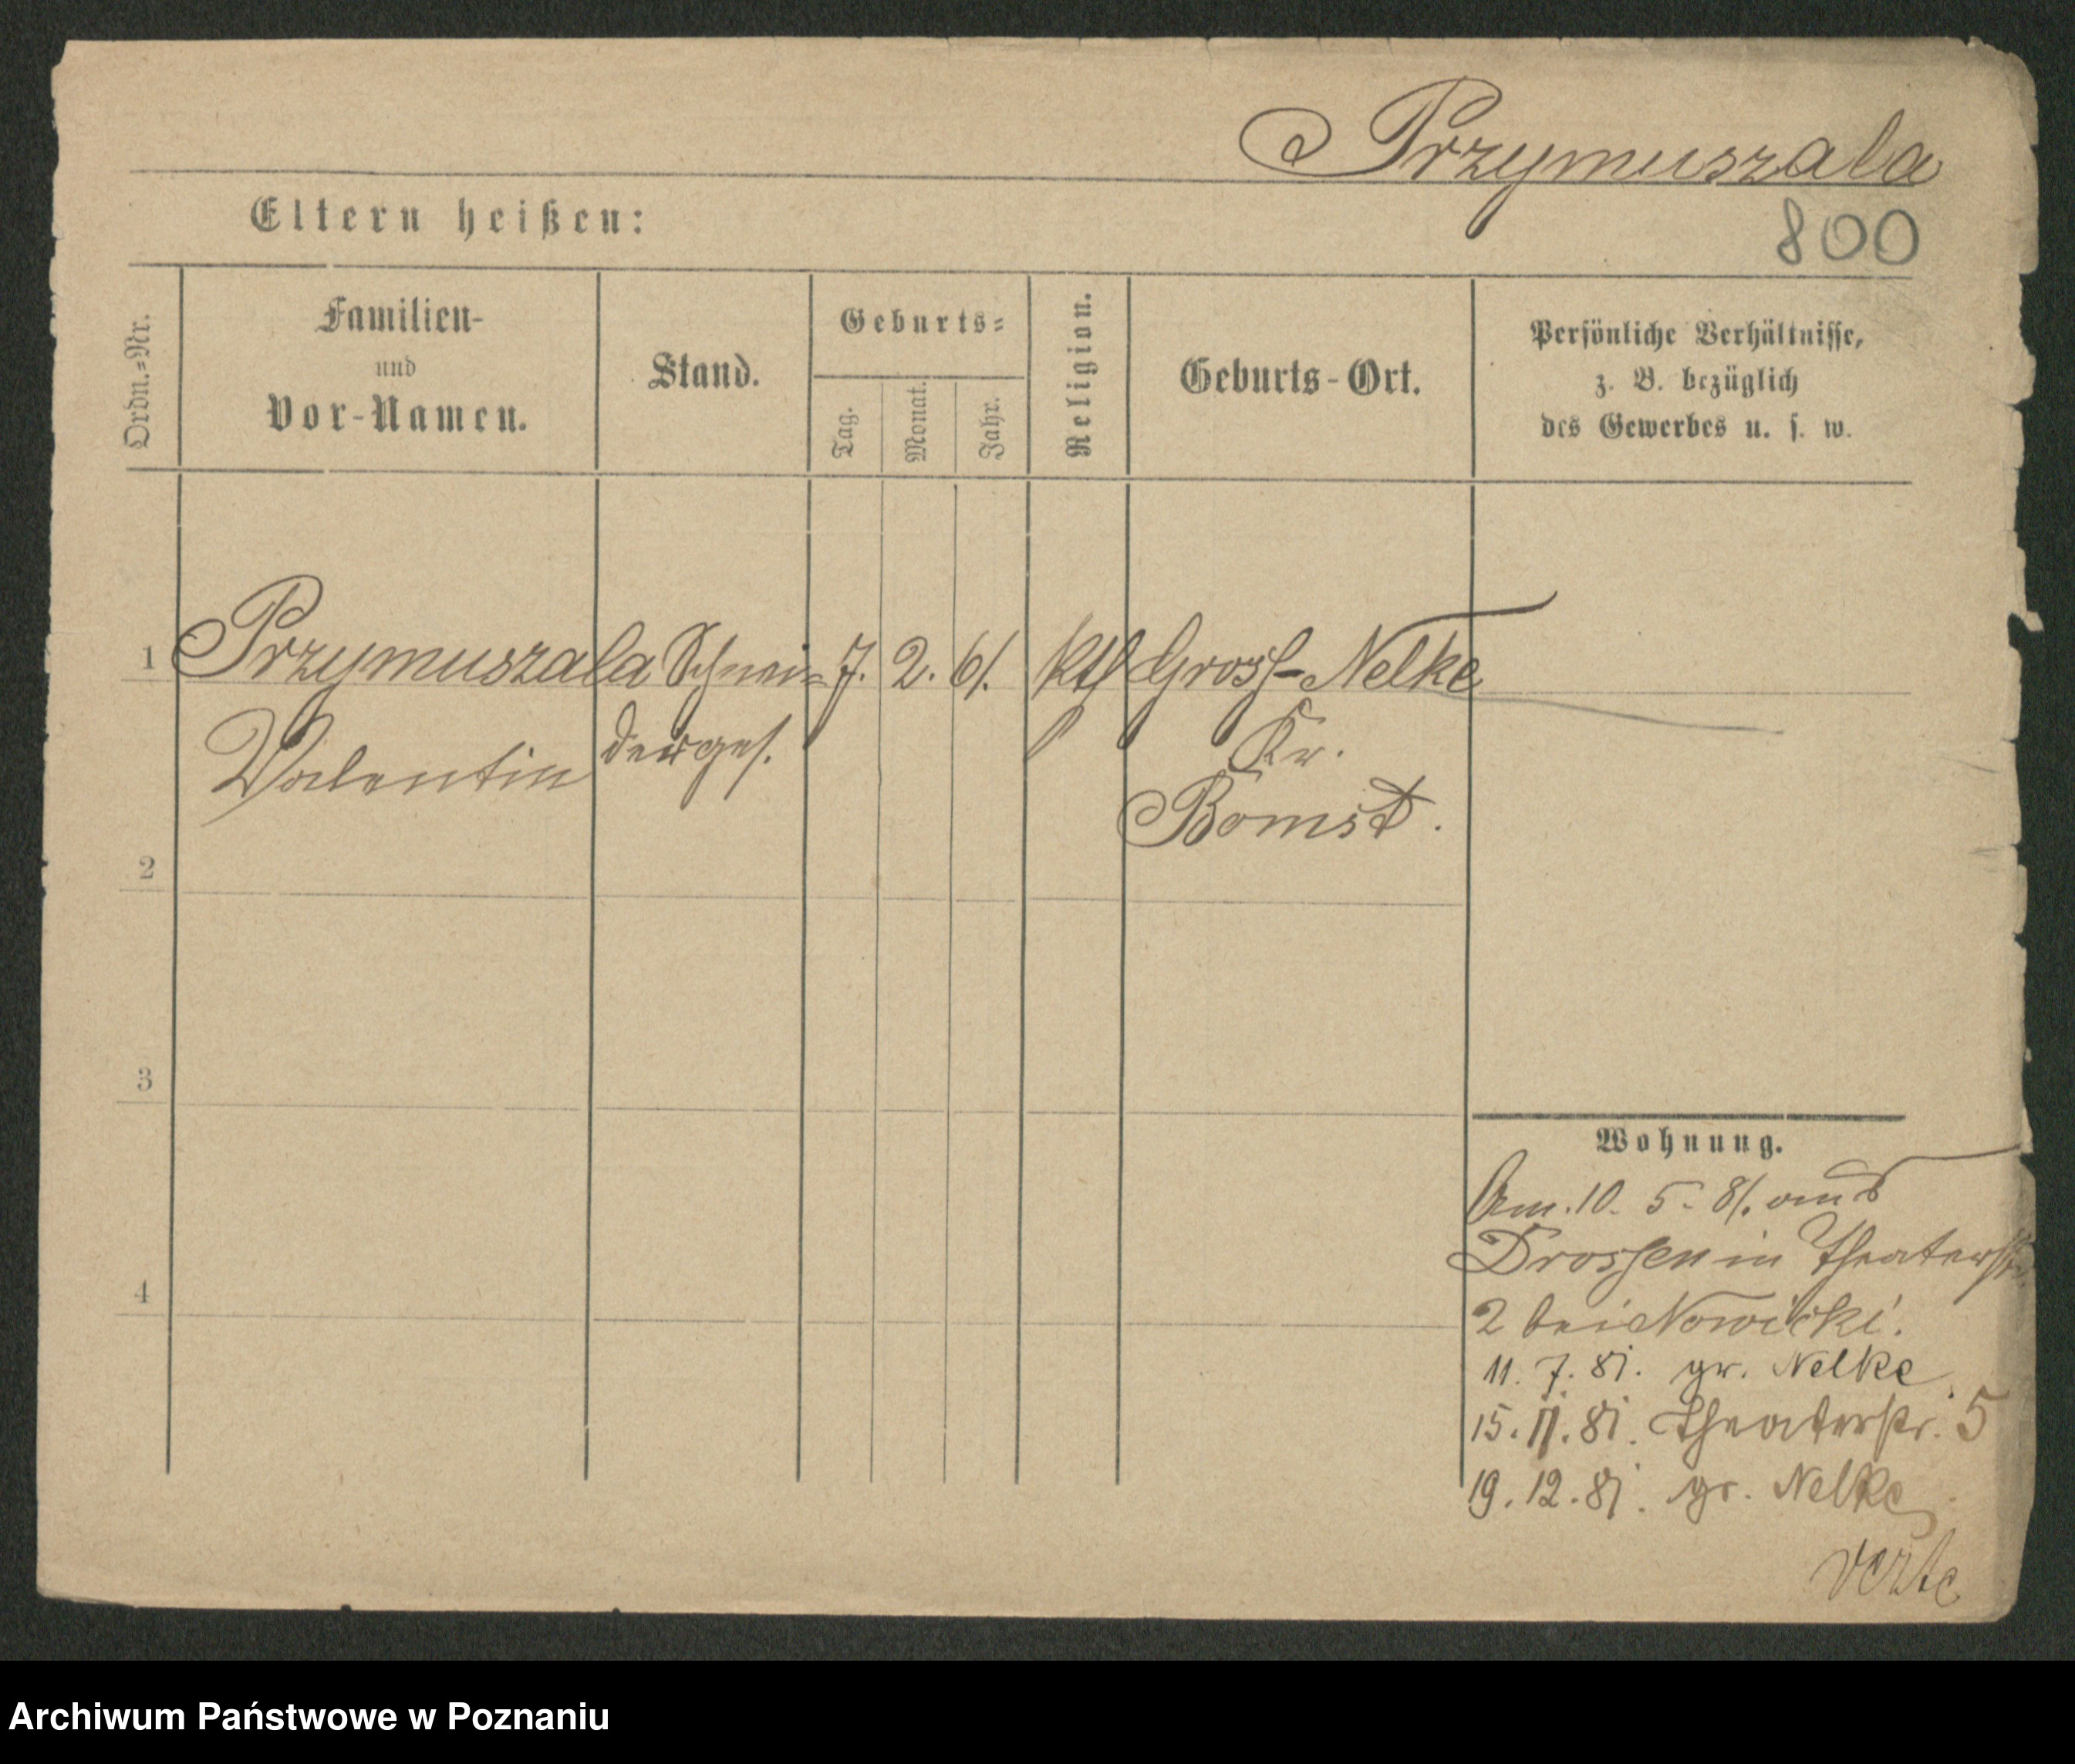 Przymuszala
Eltern heißen:
800
Ordn.-Nr.
Familien-
und
Vor-Namen.
Stand.
Geburts-
Tag.
Monat.
Jahr.
Religion.
Geburts-Ort.
Persönliche Verhältnisse,
z. B. bezüglich
des Gewerbes u. s. w.
1 Przymuszala Schnei- 7. 2. 61. kth Gross-Nelke
Valentin derges. Kr.
Bomst.
2
3
4
Wohnung.
Am. 10. 5. 81. aus
Drossen in Theaterstr.
2 bei Nowicki.
11. 7. 81. gr. Nelke
15. 11. 81. Theaterstr. 5
19. 12. 81. gr. Nelke
verte
Archiwum Państwowe w Poznaniu